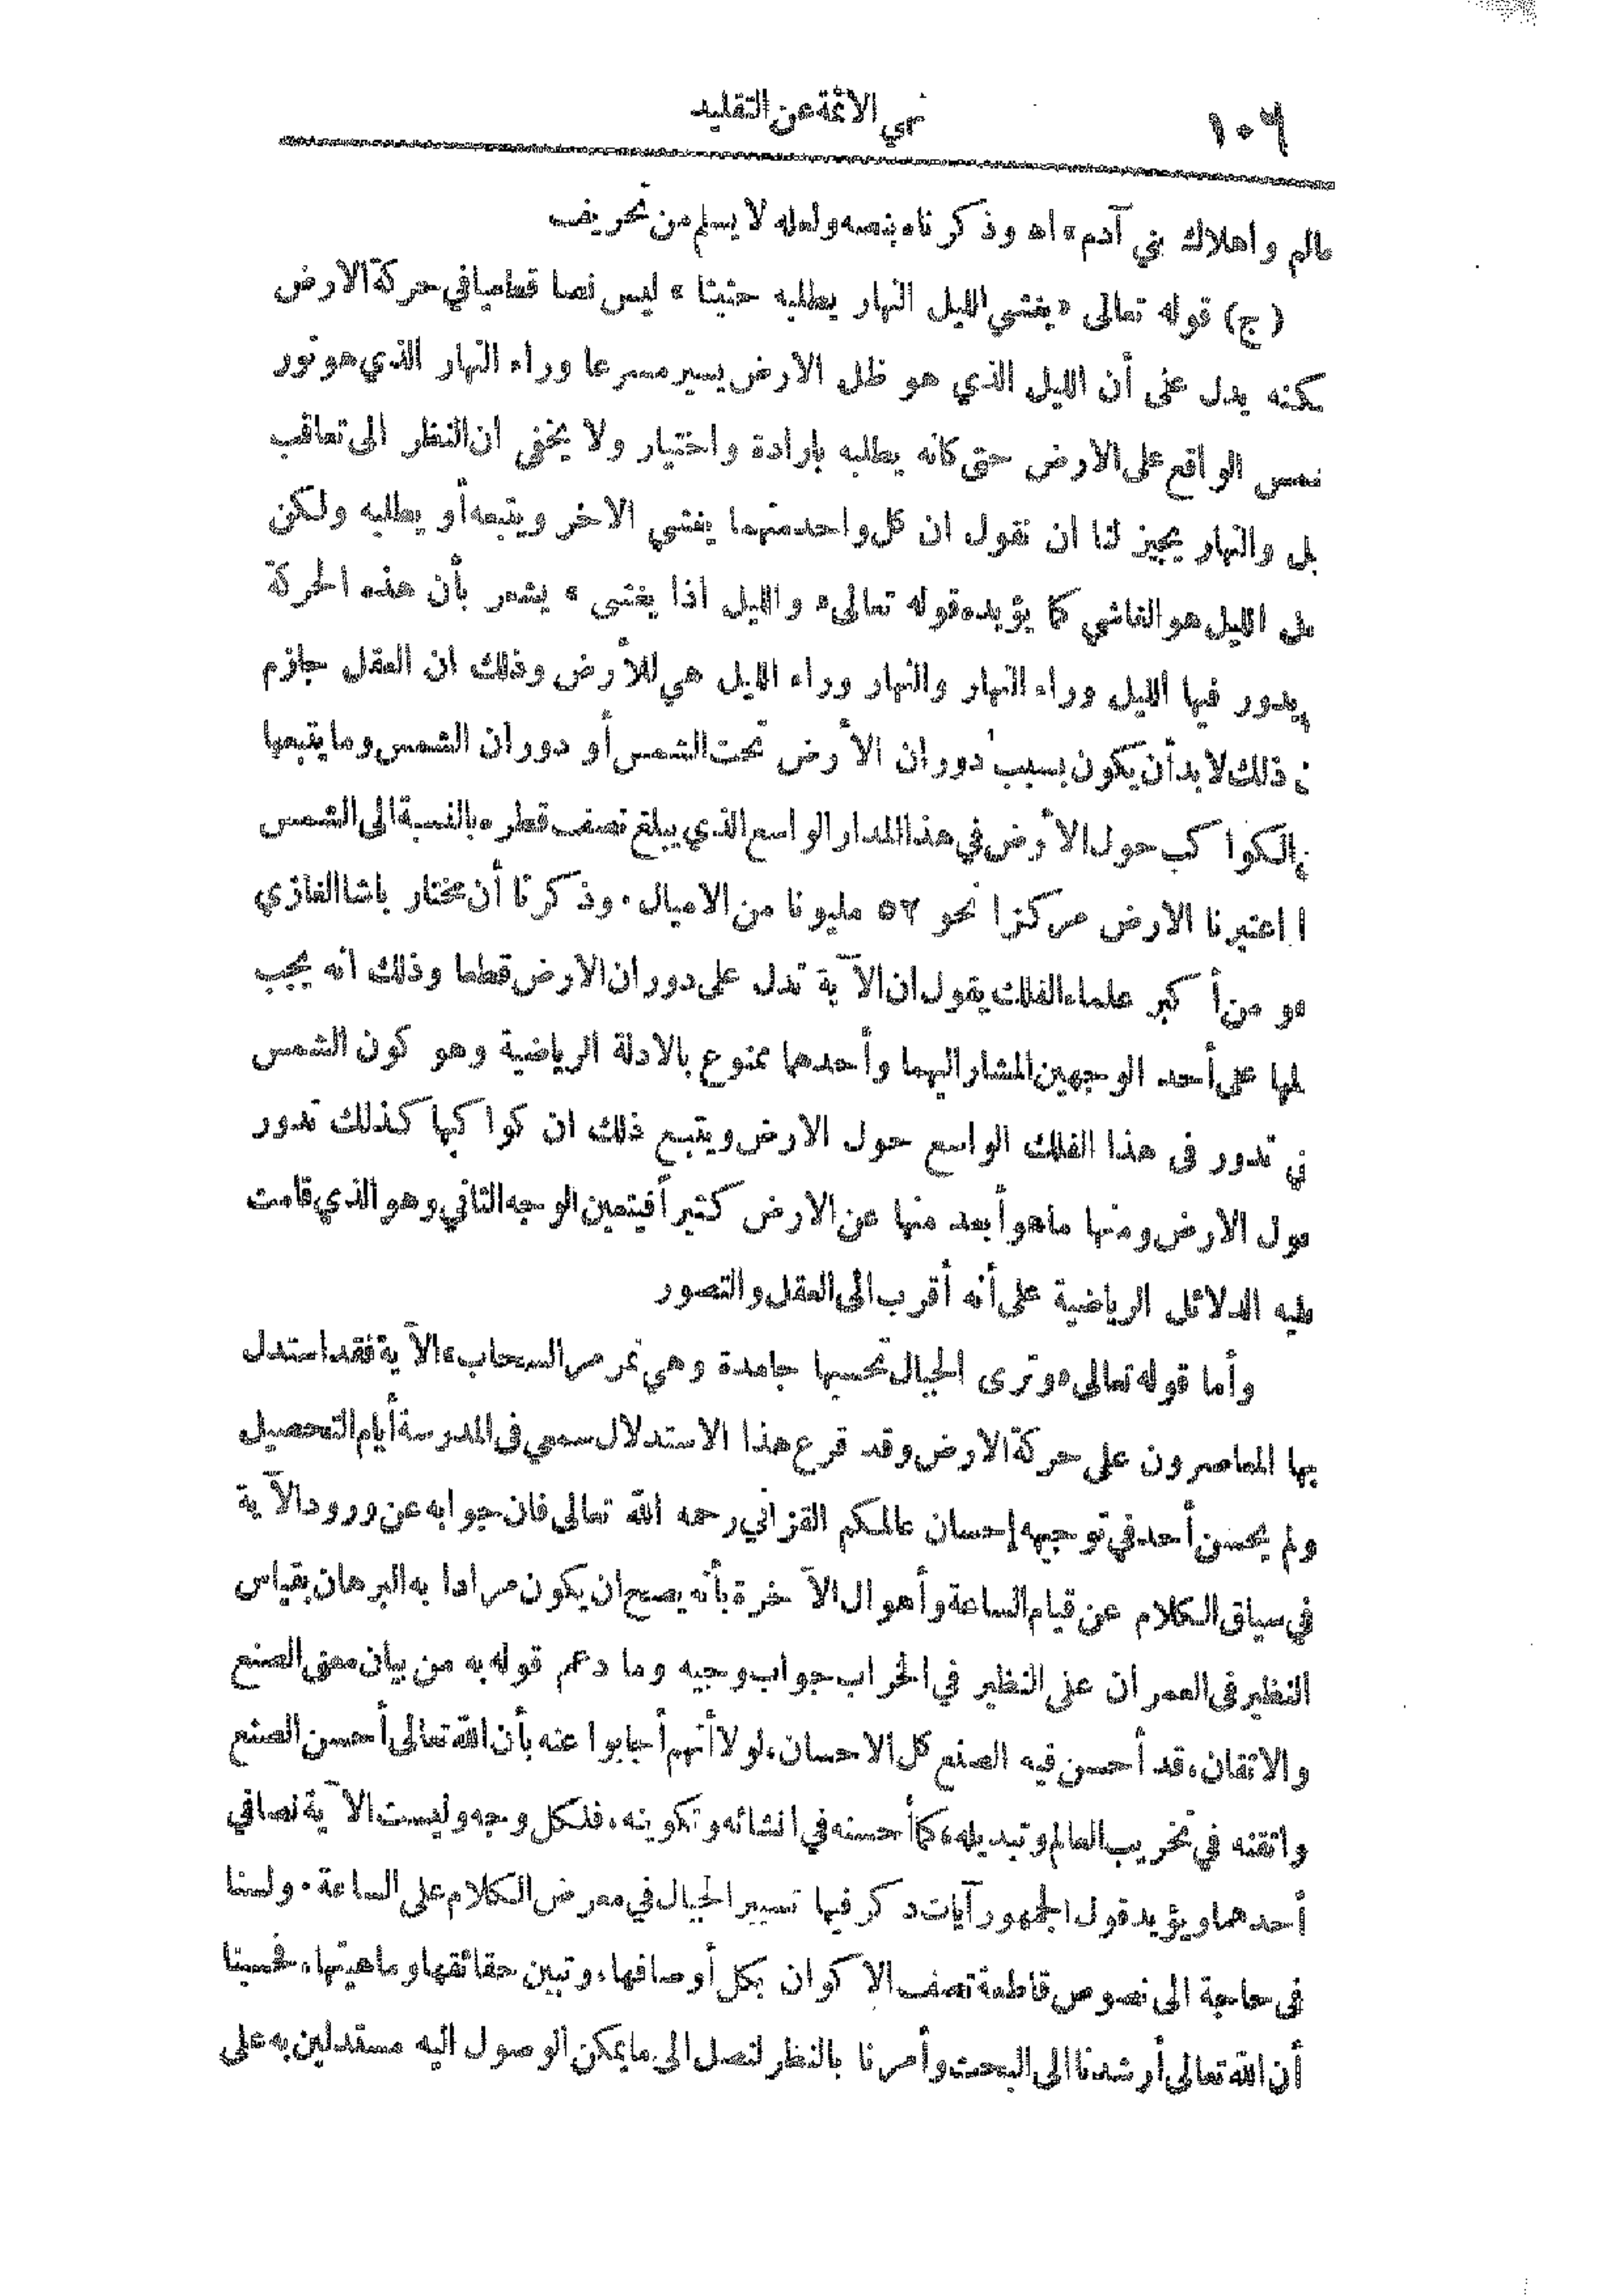 ١٠٦
نهي الائمة عن التقليد
مالم واهلاك بني آدم» اه وذكرناه بنصه ولعله لا يسلم من تحريف
(ج) قوله تعالى «يغشي الليل النهار يطلبه حثيثا» ليس نصا قطعيا في حركة الارض
كنه يدل على أن الليل الذي هو ظل الارض يسير مسرعا وراء النهار الذي هو نور
شمس الواقع على الارض حتى كانه يطلبه بارادة واختيار ولا يخفى ان النظر الى تعاقب
يل والنهار يجيز لنا ان نقول ان كل واحد منهما يغشي الاخر ويتبعه أو يطلبه ولكن
عل الليل هو الغاشي كما يؤيده قوله تعالى «والليل اذا يغشى» يشعر بأن هذه الحركة
يدور فيها الليل وراء النهار والنهار وراء الليل هي للأرض وذلك ان العقل جازم
ن ذلك لا بد أن يكون بسبب دوران الأرض تحت الشمس أو دوران الشمس وما يتبعها
ن الكواكب حول الأرض في هذا المدار الواسع الذي يبلغ نصف قطره بالنسبة الى الشمس
ا اعتبرنا الارض مركزا نحو ٥٢ مليونا من الاميال. وذكرنا أن مختار باشا الغازي
هو من أكبر علماء الفلك يقول ان الآية تدل على دوران الارض قطعا وذلك انه يجب
ملها على أحد الوجهين المشار اليهما وأحدهما ممنوع بالادلة الرياضية وهو كون الشمس
ي تدور في هذا الفلك الواسع حول الارض ويتبع ذلك ان كواكبها كذلك تدور
حول الارض ومنها ما هو أبعد منها عن الارض كثيراً فيتعين الوجه الثاني وهو الذي قامت
عليه الدلائل الرياضية على أنه أقرب الى العقل والتصور
وأما قوله تعالى «وترى الجبال تحسبها جامدة وهي تمر مر السحاب» الآية فقد استدل
بها المعاصرون على حركة الارض وقد قرع هذا الاستدلال سمعي في المدرسة أيام التحصيل
ولم يحسن أحد في توجيهه إحسان عالمكم القزاني رحمه الله تعالى فان جوابه عن ورود الآية
في سياق الكلام عن قيام الساعة وأهوال الآخرة بأنه يصح ان يكون مرادا به البرهان بقياس
النظير في العمران على النظير في الخراب جواب وجيه وما دعم قوله به من بيان معنى الصنع
والاتقان، قد أحسن فيه الصنع كل الاحسان، لولا أنهم أجابوا عنه بأن الله تعالى أحسن الصنع
واتقنه في تخريب العالم وتبديله، كما أحسنه في انشائه وتكوينه، فلكل وجه وليست الآية نصا في
أحدهما ويؤيد قول الجمهور آيات ذكر فيها تسيير الجبال في معرض الكلام على الساعة. ولسنا
في حاجة الى نصوص قاطعة تصف الاكوان بكل أوصافها، وتبين حقائقها وماهيتها، فحسبنا
أن الله تعالى أرشدنا الى البحث وأمرنا بالنظر لنصل الى ما يمكن الوصول اليه مستدلين به على